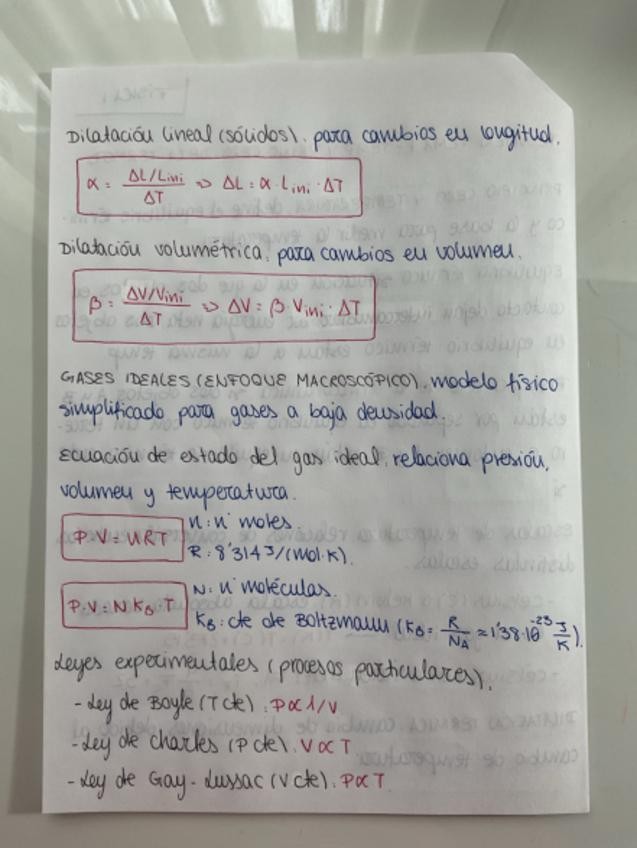 Dilatación lineal (sólidos). para cambios en longitud.
α = ΔL/Lini / ΔT => ΔL = α · Lini · ΔT
Dilatación volumétrica. para cambios en volumen.
β = ΔV/Vini / ΔT => ΔV = β · Vini · ΔT
GASES IDEALES (ENFOQUE MACROSCÓPICO). modelo físico
simplificado para gases a baja densidad.
Ecuación de estado del gas ideal. relaciona presión,
volumen y temperatura.
P·V = nRT
n: n° moles.
R: 8'314 J/(mol·K).
P·V = N KB · T
N: n° moléculas.
KB: cte de Boltzmann (KB = R/NA ≈ 1'38·10^-23 J/K).
Leyes experimentales (procesos particulares).
- Ley de Boyle (T cte). P ∝ 1/V
- Ley de Charles (P cte). V ∝ T
- Ley de Gay-Lussac (V cte). P ∝ T